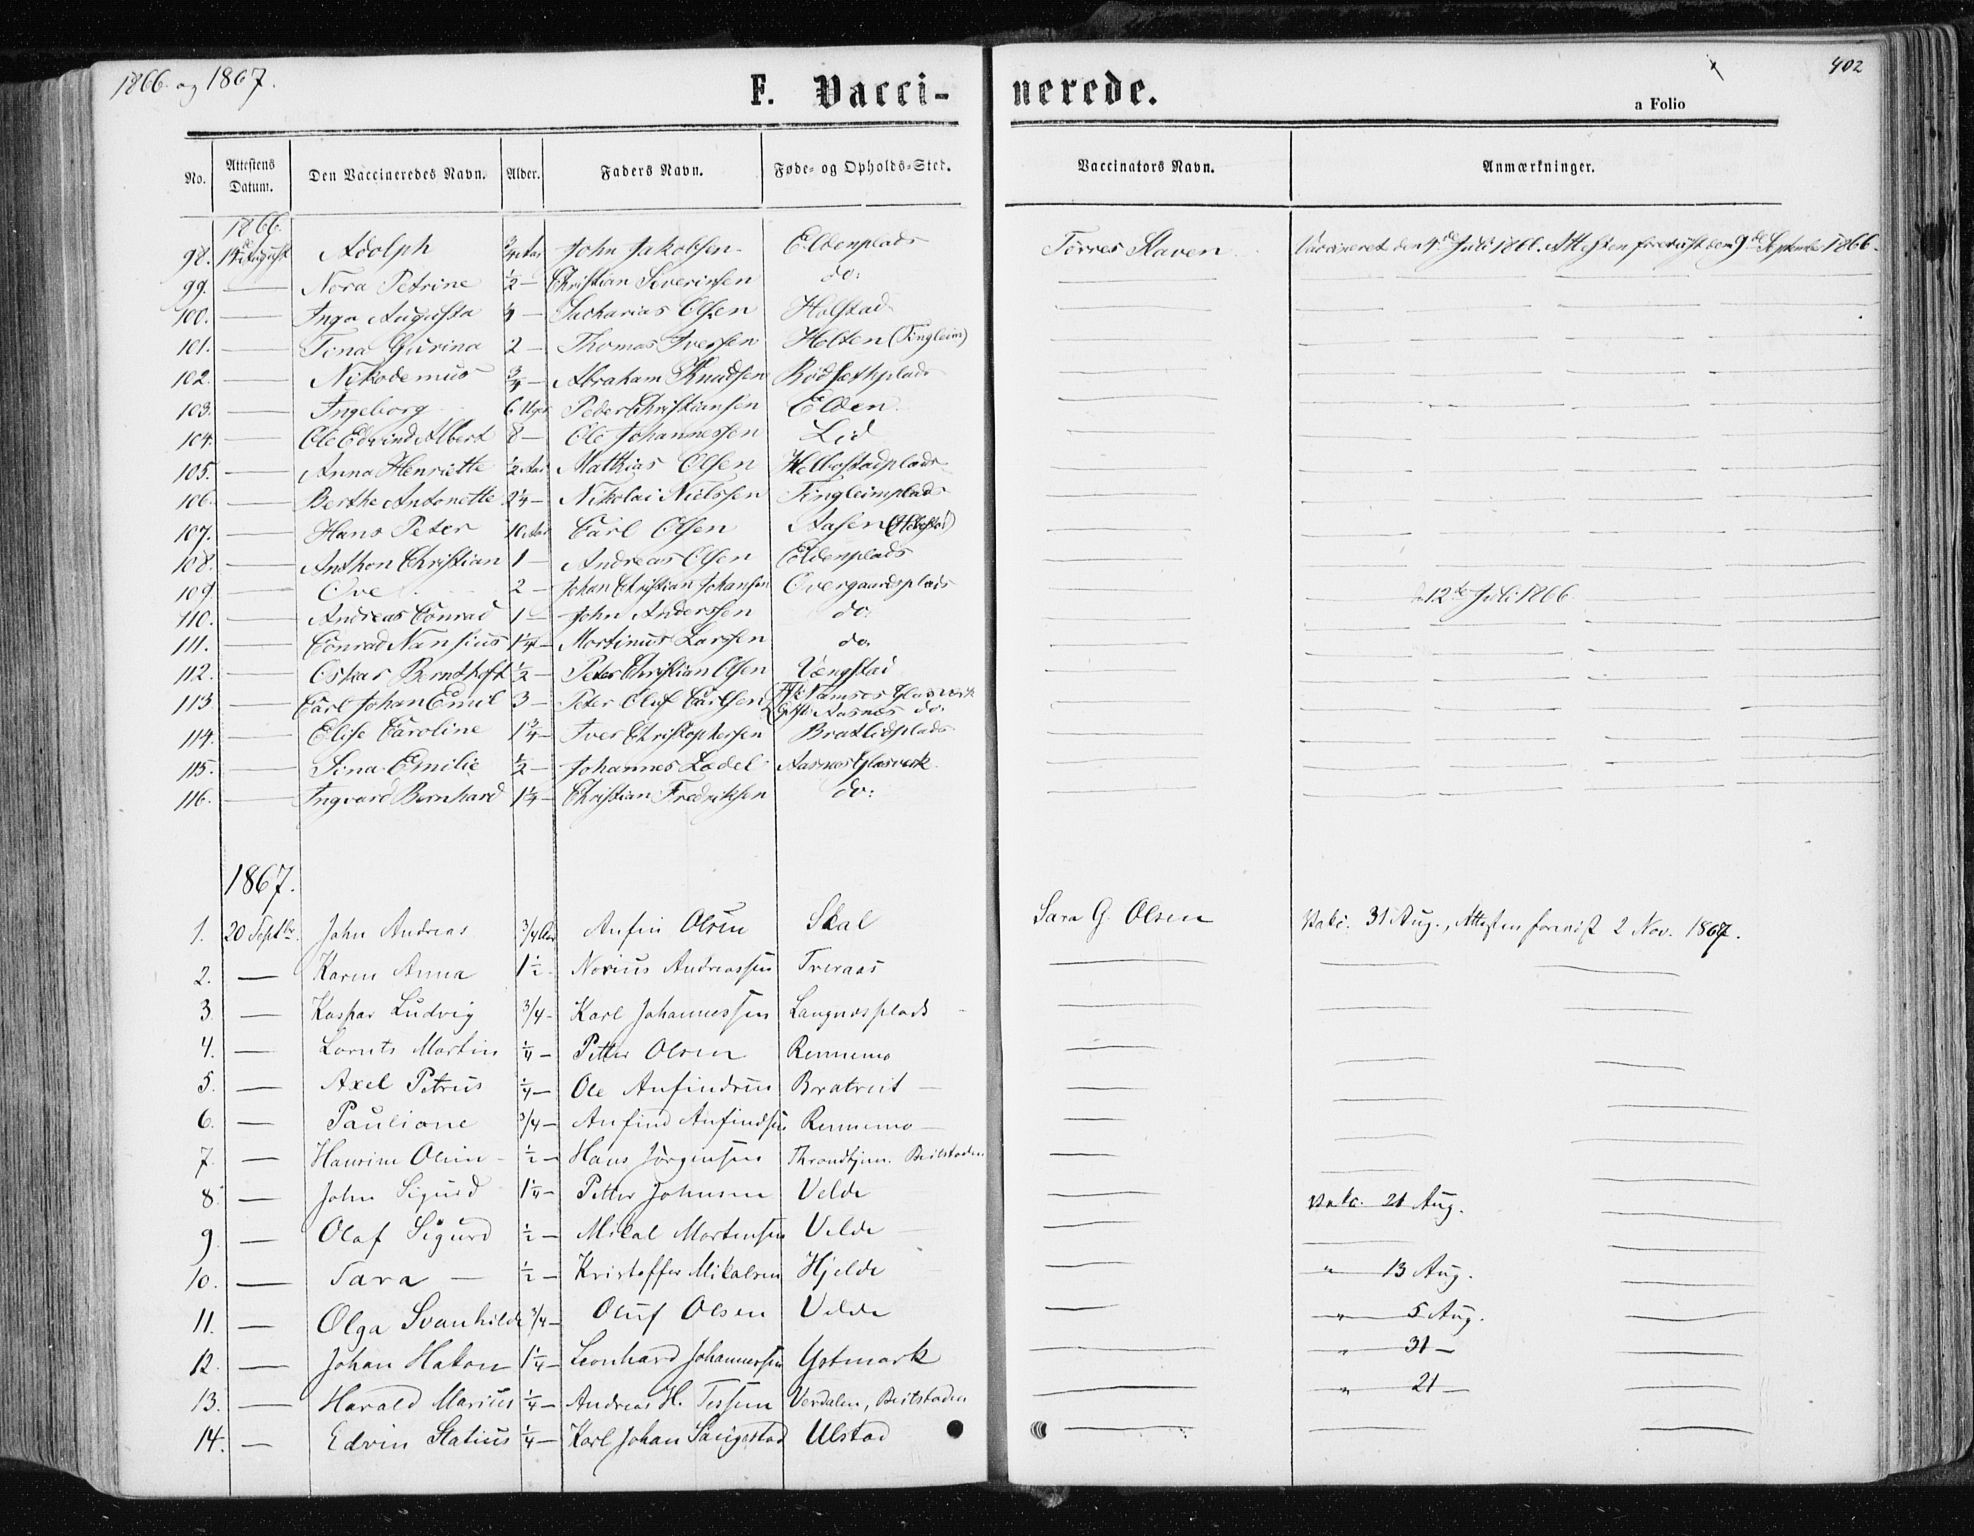 1866 og 1867.
F. Vaccinerede.
a Folio
402
No. Attestens Datum. Den Vaccineredes Navn. Alder. Faders Navn. Føde- og Opholds-Sted. Vaccinators Navn. Anmærkninger.
1866.
98. 14de August Adolph 3/4 Aar John Jakobsen Eldenplads Torres Staven Vaccineret den 4de Juli 1866. Attesten forevist den 9de September 1866.
99. — Nora Petrine 1/2 — Christian Severinsen do.
100. — Inga Augusta 4 — Zacharias Olsen Holstad
101. — Tina Gurina 2 — Thomas Iversen Holten (Tingleim)
102. — Nikodemus 3/4 — Abraham Knudsen Rødsethplads
103. — Ingeborg 6 Uger Peder Christiansen Elden
104. — Ole Edvind Albert 8 — Ole Johannessen Lid
105. — Anna Henriette 1/2 Aar Mathias Olsen Helbostadplads
106. — Berthe Antonette 2 1/4 — Nikolai Nielssen Tingleimplads
107. — Hans Peter 10 Aar Carl Olsen Aasen
108. — Anthon Christian 1 — Andreas Olsen Eldenplads
109. — Ove 2 — Johan Christian Johansen Overgaardsplads 12te Juli 1866.
110. — Andreas Conrad 1 — John Anderssen do.
111. — Conrad Nansius 1 1/4 — Mortinus Larssen do.
112. — Oskar Berndtoft 1/2 — Peter Christian Olsen Vengstad
113 — Carl Johan Emil 3 — Peter Oluf Carlsen F. Namsos Glasværk O. Aasnes do.
114. — Elise Caroline 1 3/4 — Iver Christophersen Bratlidplads
115. — Sina Emilie 1/2 — Johannes Ladel Aasnes Glasværk
116. — Ingvard Bernhard 1 1/4 — Christian Fredriksen do:
1867.
1. 20 Septbr. John Andreas 3/4 Aar Anfin Olsen Skal Sara G. Olsen Vakc. 31 Aug., Attesten forevist 2 Nov. 1867.
2. — Karen Anna 1 1/2 Norius Andreassen Treraas
3 — Kaspar Ludvig 3/4 — Karl Johannessen Langnesplads
4. — Lornts Martin 1/4 — Petter Olsen Rennemo
5. — Axel Petrus 1/4 — Ole Anfindsen Bratreit
6. — Pauliane 3/4 — Anfind Anfindsen Rennemo
7. — Hansine Oline 1/2 — Hans Jörgensen Throndhjem. Beitstaden
8 — John Sigurd 1 1/4 — Petter Johnsen Velde Vakc. 21 Aug.
9 — Olaf Sigurd 1/2 — Mikal Mortensen Velde
10. — Sara — 1/2 — Kristoffer Mikalsen Hjelde " 13 Aug.
11. — Olga Svanhilde 3/4 — Oluf Olsen Velde " 5 Aug.
12. — Johan Hakon 1 1/4 — Leonhard Johannessen Ystmark " 31 —
13. — Harald Marius 1/4 — Andreas H. Tessem Verdalen, Beitstaden " 21 —
14. — Edvin Statius 1/4 — Karl Johan Saugestad Ulstad